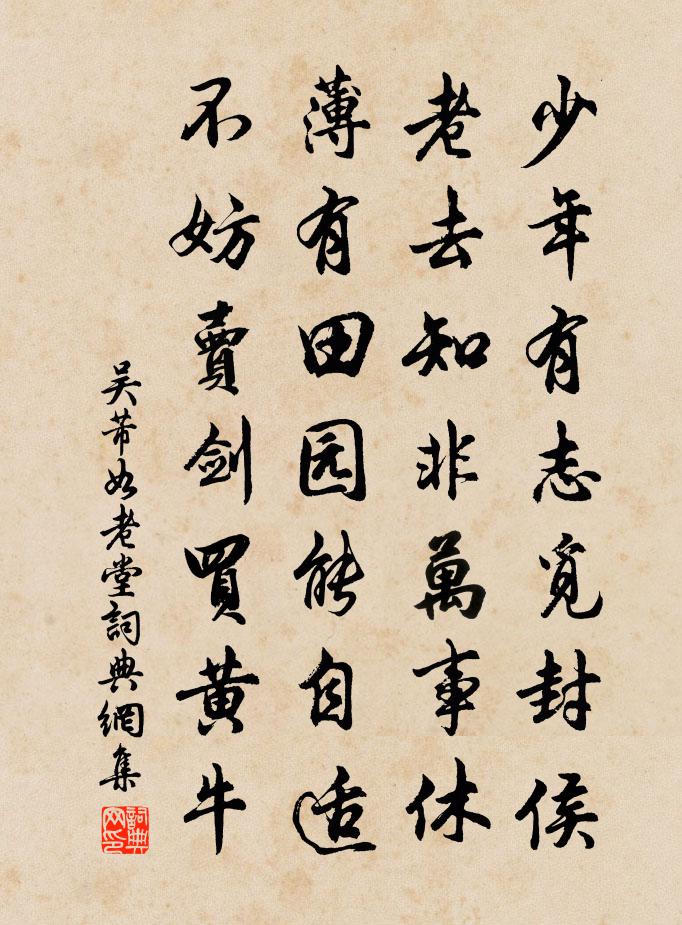 少年有志覓封侯
老去知非萬事休
薄有田园能自适
不妨賣劍買黃牛
吴芾如老堂詞典網集
詞典网印